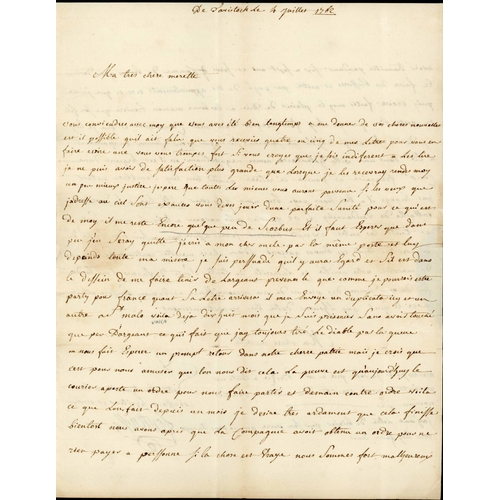 De Tavistock le 4 juillet 1762
Ma tres chere moresse
vous conviendrez avec moy que vous avez été bien longtemps a me donne de vos chere nouvelles
est il possible quil ait falut que vous receviez quatre ou cinq de mes Lettres pour vous en
faire ecrire une vous vous trompes fort Si vous croyes que je sois indiferent a les lire
je ne puis avoir de satisfaction plus grande que Lorsque je les recevray rendes moy
un peu mieux justice jespere que toute les miene vous auront parvenue Si les veux que
jadresse au ciel Sont exauces vous devez jouir dune parfaite Santé pour ce qui est
de moy il me reste Encore quelque peu de Scorbut Et il faut Esperer que dans
peu jen Seray quitte jecris a mon cher oncle par la même poste et luy
depeinds toute ma misere je suis persuadé quil y aura Egard et Sil est dans
le dessein de me faire tenir de Largeant prevenez le que comme je pourois estre
party pour france quant Sa Letre arrivera il men Envoye un duplicata icy et un
autre a St malo voicy deja dix huit mois que je Suis prisonier Sans avoir touché
que peu Dargeant ce qui fait que jay toujours tiré Le diable par la queue
on nous fait Esperer un prompt retour dans notre chere patrie mais je crois que
cest pour nous amuser que lon nous dit cela La preuve est quaujourdhuy le
courier aporte un ordre pour nous faire partir et demain contre ordre voila
ce que Lon fait depuis un mois je desire tres ardament que cela finisse
bientost nous avons apris que La Compagnie avoit obtenu un ordre pour ne
rien payer a personne Si la chose est Vraye nous Sommes fort malheureux